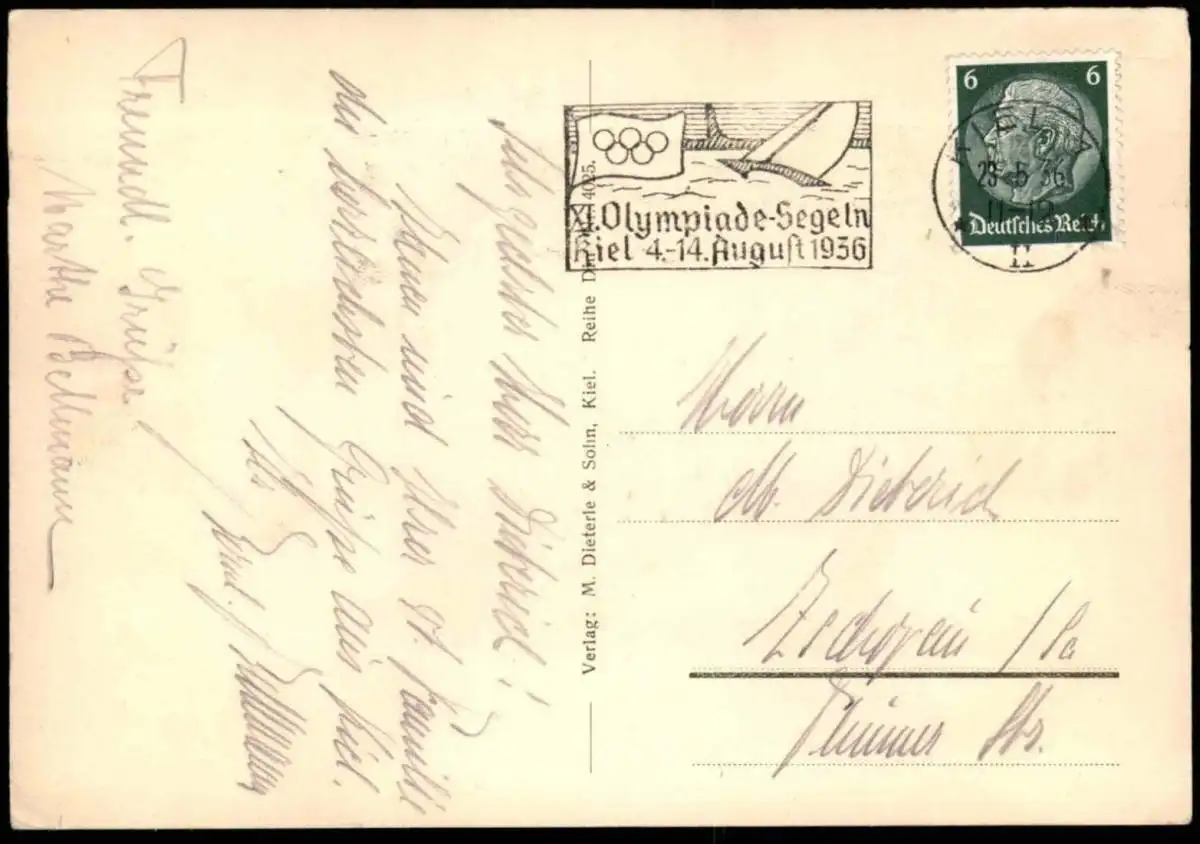 6 6
Deutsches Reich
KIEL
23.5.36
11-12
XI. Olympiade-Segeln
Kiel 4.-14. August 1936
Sehr geehrter Herr Dieterich!
Ihnen und Ihrer Familie
die herzlichsten Grüße aus Kiel.
Ihr
Freundl. Grüße
Marthe Bellmann
Verlag: M. Dieterle & Sohn, Kiel. Reihe 4025.
Herrn
M. Dieterich
Zschopau / Sa
Str.